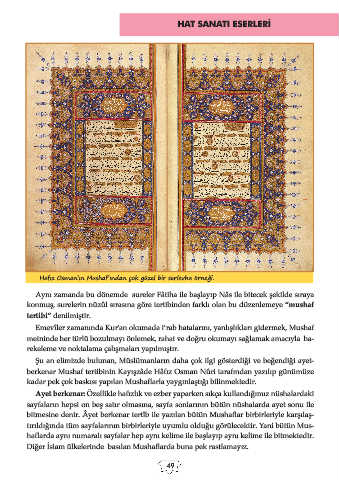 HAT SANATI ESERLERİ
Hafız Osman'ın Mushaf'ından çok güzel bir serlevha örneği.
Aynı zamanda bu dönemde sureler Fâtiha ile başlayıp Nâs ile bitecek şekilde sıraya
konmuş, surelerin nüzûl sırasına göre tertibinden farklı olan bu düzenlemeye "mushaf
tertibi" denilmiştir.
Emevîler zamanında Kur'an okumada i'rab hatalarını, yanlışlıkları gidermek, Mushaf
metninde her türlü bozulmayı önlemek, rahat ve doğru okumayı sağlamak amacıyla ha-
rekeleme ve noktalama çalışmaları yapılmıştır.
Şu an elimizde bulunan, Müslümanların daha çok ilgi gösterdiği ve beğendiği ayet-
berkenar Mushaf tertibinin Kayışzâde Hâfız Osman Nûri tarafından yazılıp günümüze
kadar pek çok baskısı yapılan Mushaflarla yaygınlaştığı bilinmektedir.
Ayet berkenar: Özellikle hafızlık ve ezber yaparken sıkça kullandığımız nüshalardaki
sayfaların hepsi on beş satır olmasına, sayfa sonlarının bütün nüshalarda ayet sonu ile
bitmesine denir. Âyet berkenar tertib ile yazılan bütün Mushaflar birbirleriyle karşılaş-
tırıldığında tüm sayfalarının birbirleriyle uyumlu olduğu görülecektir. Yani bütün Mus-
haflarda aynı numaralı sayfalar hep aynı kelime ile başlayıp aynı kelime ile bitmektedir.
Diğer İslam ülkelerinde basılan Mushaflarda buna pek rastlamayız.
49